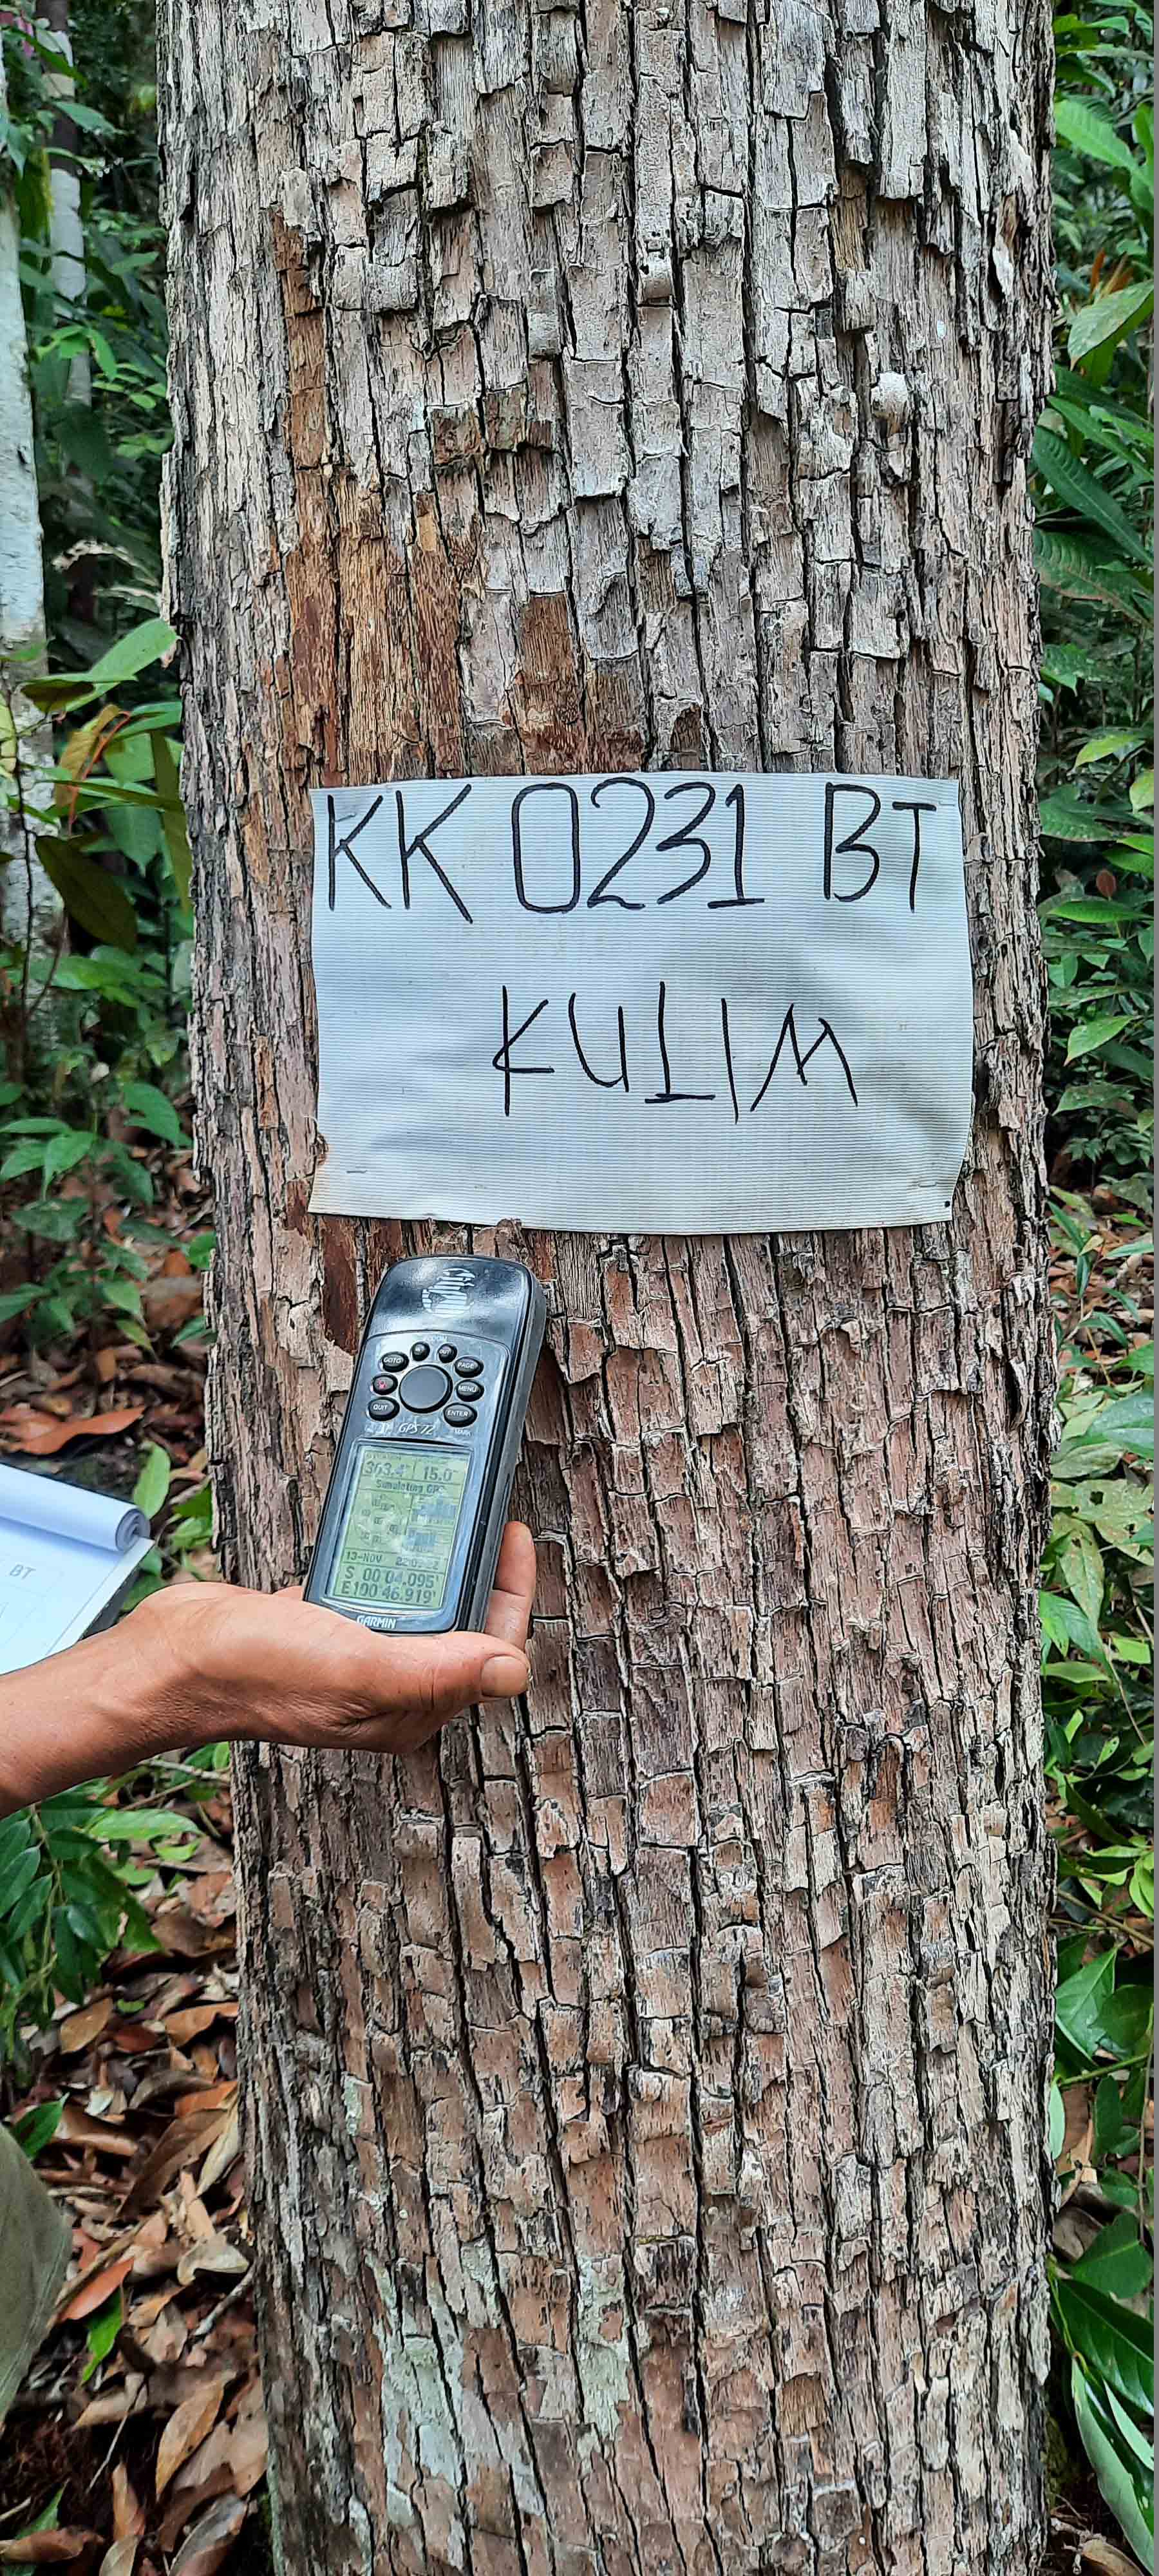 KK 0231 BT
KULIM
GARMIN
ZOOM
GOTO
PAGE
MENU
QUIT
ENTER
MARK
GPS 72
15.0
Simulating GPS
13-NOV
S 00 04.095'
E100 46.919'
GARMIN
BT